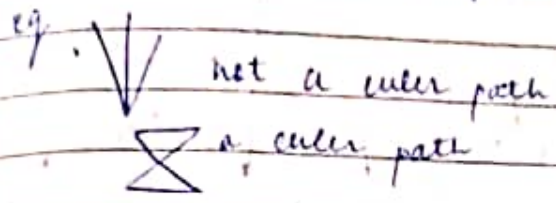 eg.
not a euler path
a euler path